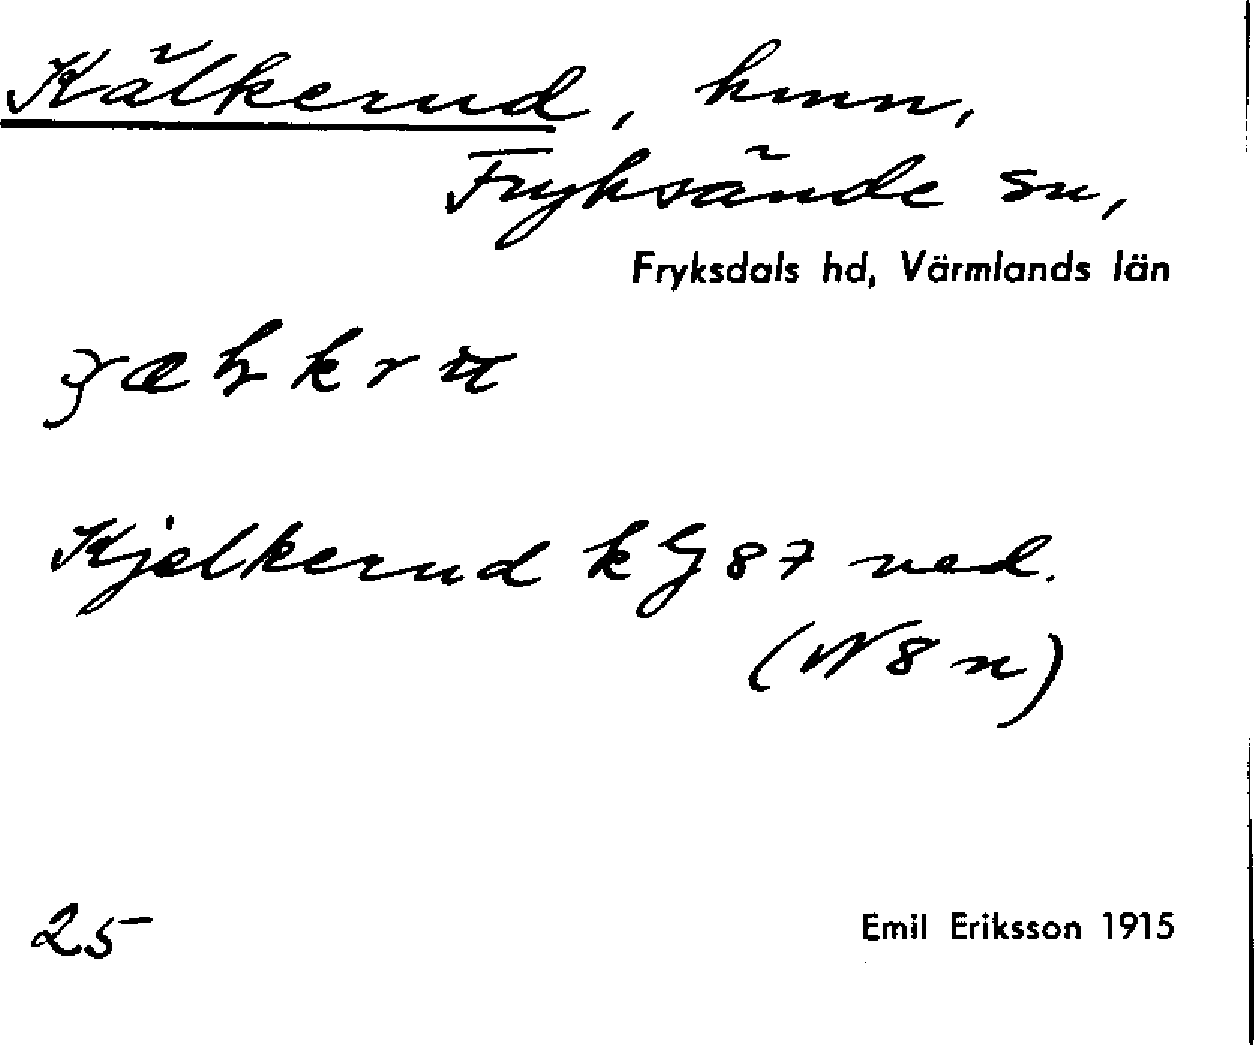 Kälkerud, hmn,
Fryksände sn,
Fryksdals hd, Värmlands län
Kjelkerud k Gj 87 ned.
(N8n)
25
Emil Eriksson 1915